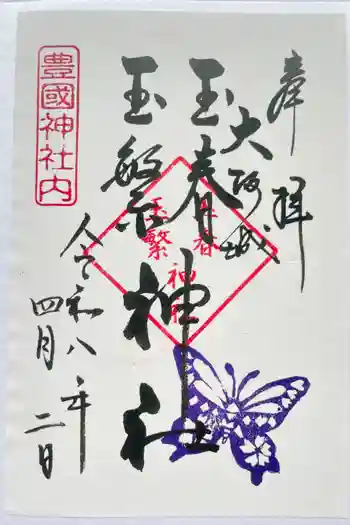 奉拝
大阪城
玉春
玉繁
神社
豊國神社内
玉春
玉繁
神社
令和八年
四月二日